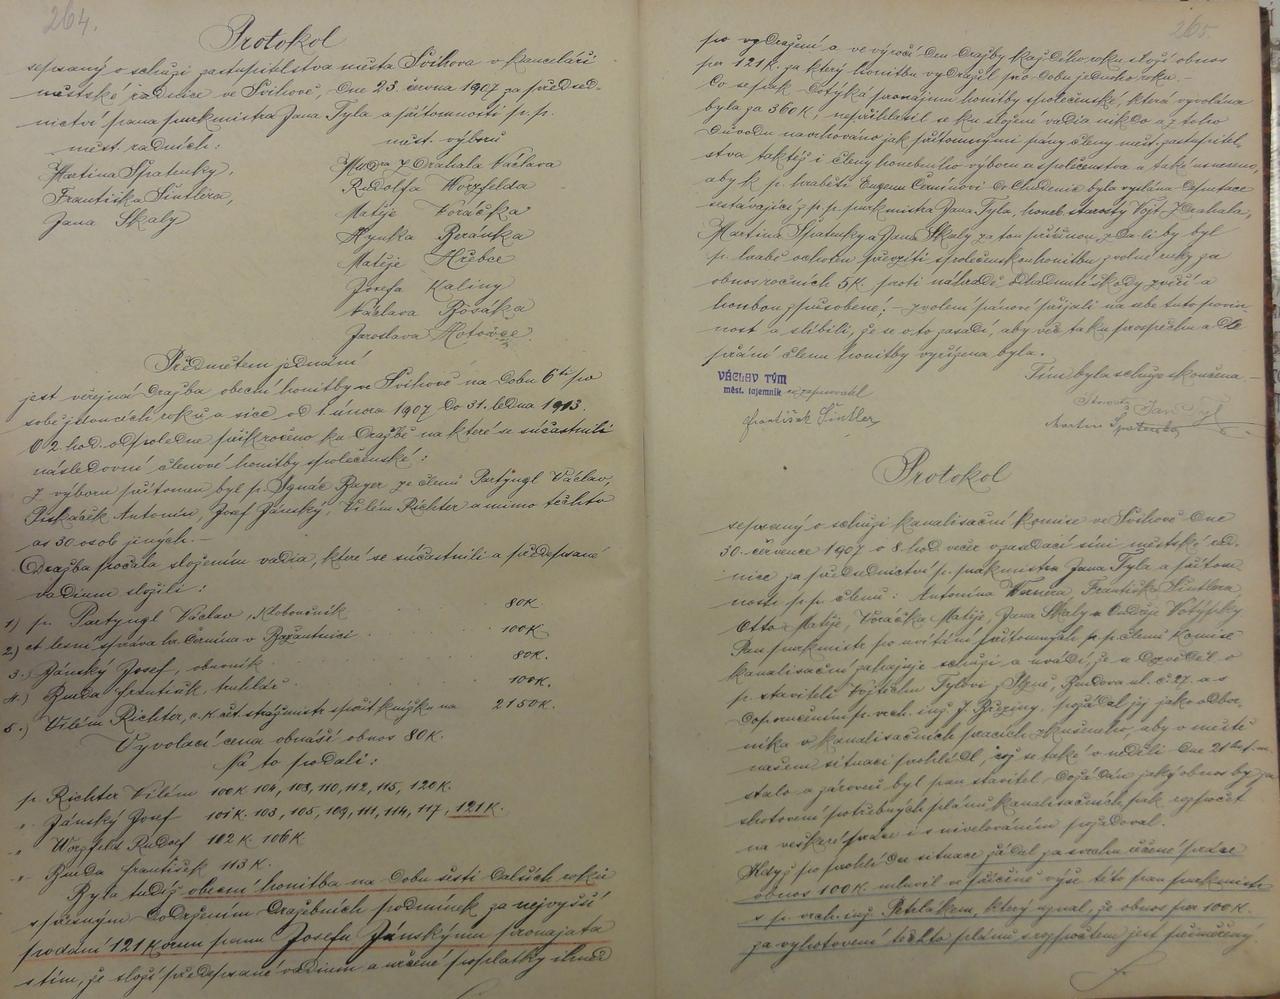 264.
Protokol
sepsaný o schůzi zastupitelstva města Švihova v kanceláři
městské radnice ve Švihově, dne 23. června 1907 za předsed-
nictví pana purkmistra Jana Tyla a přítomnosti p. p.
měst. radních:
Martina Spatenky,
Františka Šintlera,
Jana Skaly
měst. výborů
Zdrahala Václava
Rudolfa Worzfelda
Matěje Voráčka
Hynka Beránka
Matěje Hřebce
Josefa Kaliny
Václava Bosáka
Jaroslava Hotovce
Předmětem jednání
jest veřejná dražba obecní honitby ve Švihově na dobu 6ti po
sobě jdoucích roků a sice od 1. února 1907 do 31. ledna 1913.
O 2. hod. odpoledne přikročeno ku dražbě na které se súčastnili
následovní členové honitby společenské:
z výboru přítomen byl p. Ignác Bayer ze členů Partyngl Václav,
Piskáček Antonín, Josef Jánský, Vilém Richter a mimo těchto
as 30 osob jiných. —
Dražba počala složením vadia, které se súčastnili a předepsané
vadium složili:
1) p. Partyngl Václav, Kloboučník 80K
2.) ct lesní správa hr. Černína v Bažantnici 100K
3.) Jánský Josef, obuvník 80K.
4.) Buda František, truhlář 100K.
5.) Vilém Richter, c. k. čet. strážmistr spoř. knížku na 2150K.
Vyvolací cena obnáší obnos 80K.
Na to podali:
p. Richter Vilém 100K 104, 108, 110, 112, 115, 120K.
" Jánský Josef 101K. 103, 105, 109, 111, 114, 117, 121K.
" Worzfeld Rudolf 102K 106K
" Buda František 113K.
Byla tudíž obecní honitba na dobu šesti dalších roků
správným dodržením dražebních podmínek za nejvyšší
podání 121 Korun panu Josefu Jánskýmu pronajata
s tím, že složí předepsané vadium a určené poplatky ihned
265.
po vydražení a ve výročí den dražby každého roku složí obnos
per 121K. za který honitbu vydražil pro dobu jednoho roku. —
Co se pak dotýká pronájmu honitby společenské, která vyvolána
byla za 360K, nepřihlásil se ku složení vadia nikdo a z toho
důvodu navrhováno jak přítomnými pány členy měst. zastupitel-
stva taktéž i členy honebního výboru a společenstva a také usneseno,
aby k p. hraběti Eugenu Černínovi do Chudenic byla vyslána deputace
sestávající z p. p. purkmistra Jana Tyla, honeb. starosty Vojt. Zdrahala,
Martina Spatenky a Jana Skaly za tou příčinou, zda-li by byl
p. hrabě ochoten převzíti společenskou honitbu z volné ruky za
obnos ročních 5K. proti náhradě škody zvěří a
honbou způsobené; — zvolení pánové přijali na sebe tuto povin-
nost a slíbili, že se o to zasadí, aby věc ta ku prospěchu a dle
přání členů honitby vyřízena byla.
Tím byla schůze skončena —
VÁCLAV TÝM
měst. tajemník zapisovatel
František Šintler
Starosta Jan Tyl
Martin Spatenka
Protokol
sepsaný o schůzi kanalisační komise ve Švihově dne
30. července 1907 o 8. hod večer v zasedací síni městské rad-
nice za předsednictví p. purkmistra Jana Tyla a přítom
nosti p. p. členů: Antonína Wernera, Františka Šintlera,
Otto Matěje, Voráčka Matěje, Jana Skaly a Ondřeje Votýpky
Pan purkmistr po uvítání přítomných p. p. členů komise
kanalisační zahajuje schůzi a uvádí, že se dozvěděl o
p. staviteli Vojtěchu Tylovi z Plzně, Budova ul. č. 27. a s
doporučením p. vrch. inž. J. Březiny požádal jej jako odbor-
níka v kanalisačních pracích zkušeného, aby v městě
našem situaci prohlédl, což se také v neděli dne 21ho t. m.
stalo a zároveň byl pan stavitel dožádán jaký obnos by za
zhotovení potřebných plánů kanalisačních pak rozpočet
na veškeré práce i s nivelováním požadoval.
Když po prohlídce situace žádal za svrchu řečené práce
obnos 100K mluvil ve příčině výše této pan purkmistr
s p. vrch. inž. Petrlákem, který uznal, že obnos per 100K.
za vyhotovení těchto plánů s rozpočtem jest přiměřený.